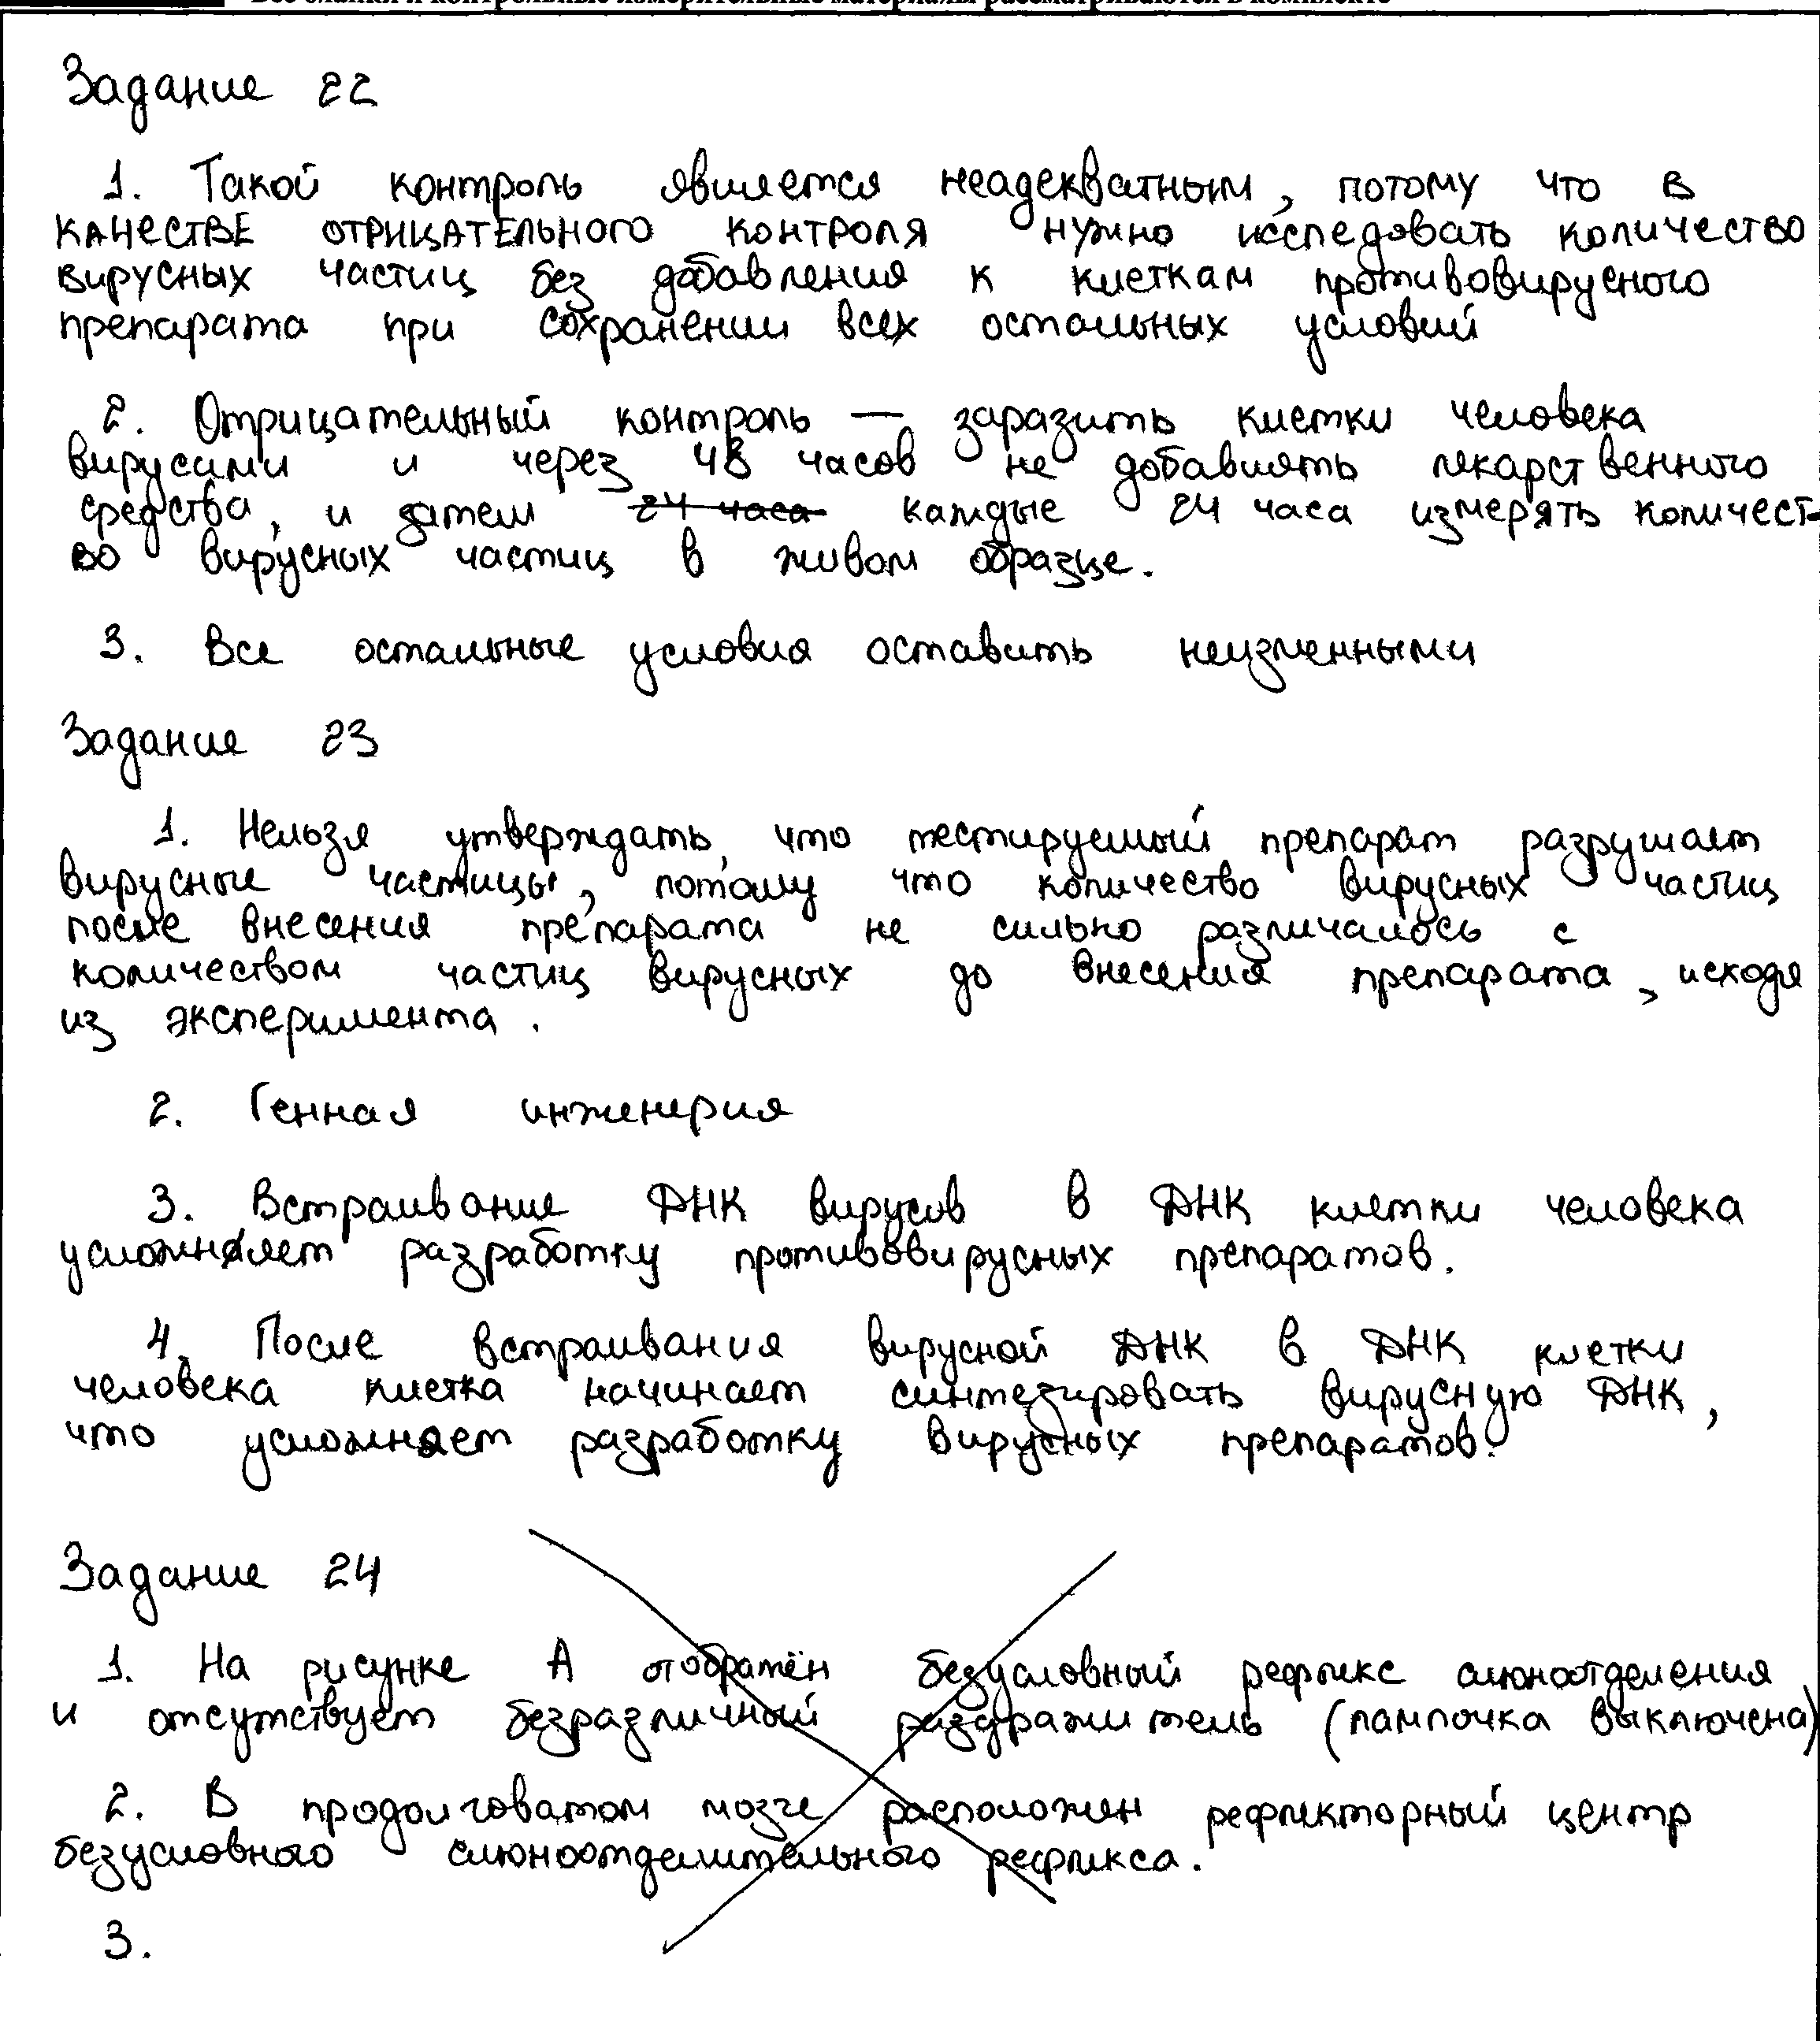 Все бланки и контрольные измерительные материалы рассматриваются в комплекте
Задание 22
1. Такой контроль является неадекватным, потому что в
качестве отрицательного контроля нужно исследовать количество
вирусных частиц без добавления к клеткам противовирусного
препарата при сохранении всех остальных условий
2. Отрицательный контроль — заразить клетки человека
вирусами и через 48 часов не добавлять лекарственного
средства, и затем 24 часа каждые 24 часа измерять количест-
во вирусных частиц в живом образце.
3. Все остальные условия оставить неизменными
Задание 23
1. Нельзя утверждать, что тестируемый препарат разрушает
вирусные частицы, потому что количество вирусных частиц
после внесения препарата не сильно различалось с
количеством частиц вирусных до внесения препарата, исходя
из эксперимента.
2. Генная инженерия
3. Встраивание ДНК вирусов в ДНК клетки человека
усложняет разработку противовирусных препаратов.
4. После встраивания вирусной ДНК в ДНК клетки
человека клетка начинает синтезировать вирусную ДНК,
что усложняет разработку вирусных препаратов.
Задание 24
1. На рисунке А отображён безусловный рефлекс слюноотделения
и отсутствует безразличный раздражитель (лампочка выключена)
2. В продолговатом мозге расположен рефлекторный центр
безусловного слюноотделительного рефлекса.
3.